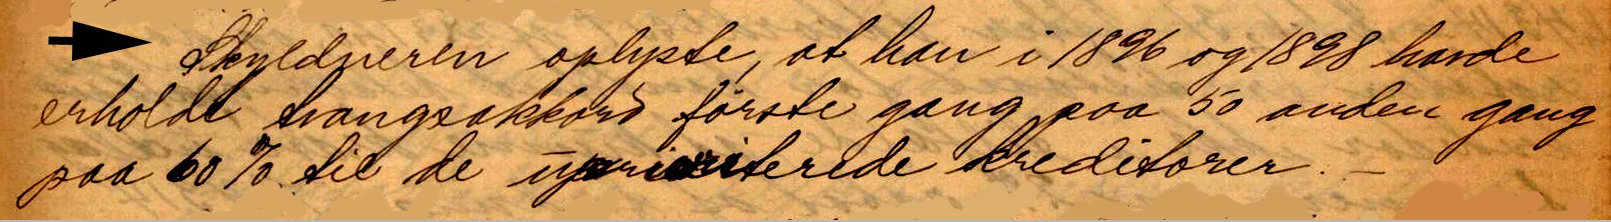 Skyldneren oplyste, at han i 1896 og 1898 havde
erholdt tvangsakkord første gang paa 50 anden gang
paa 60 % til de uprioriterede kreditorer. –